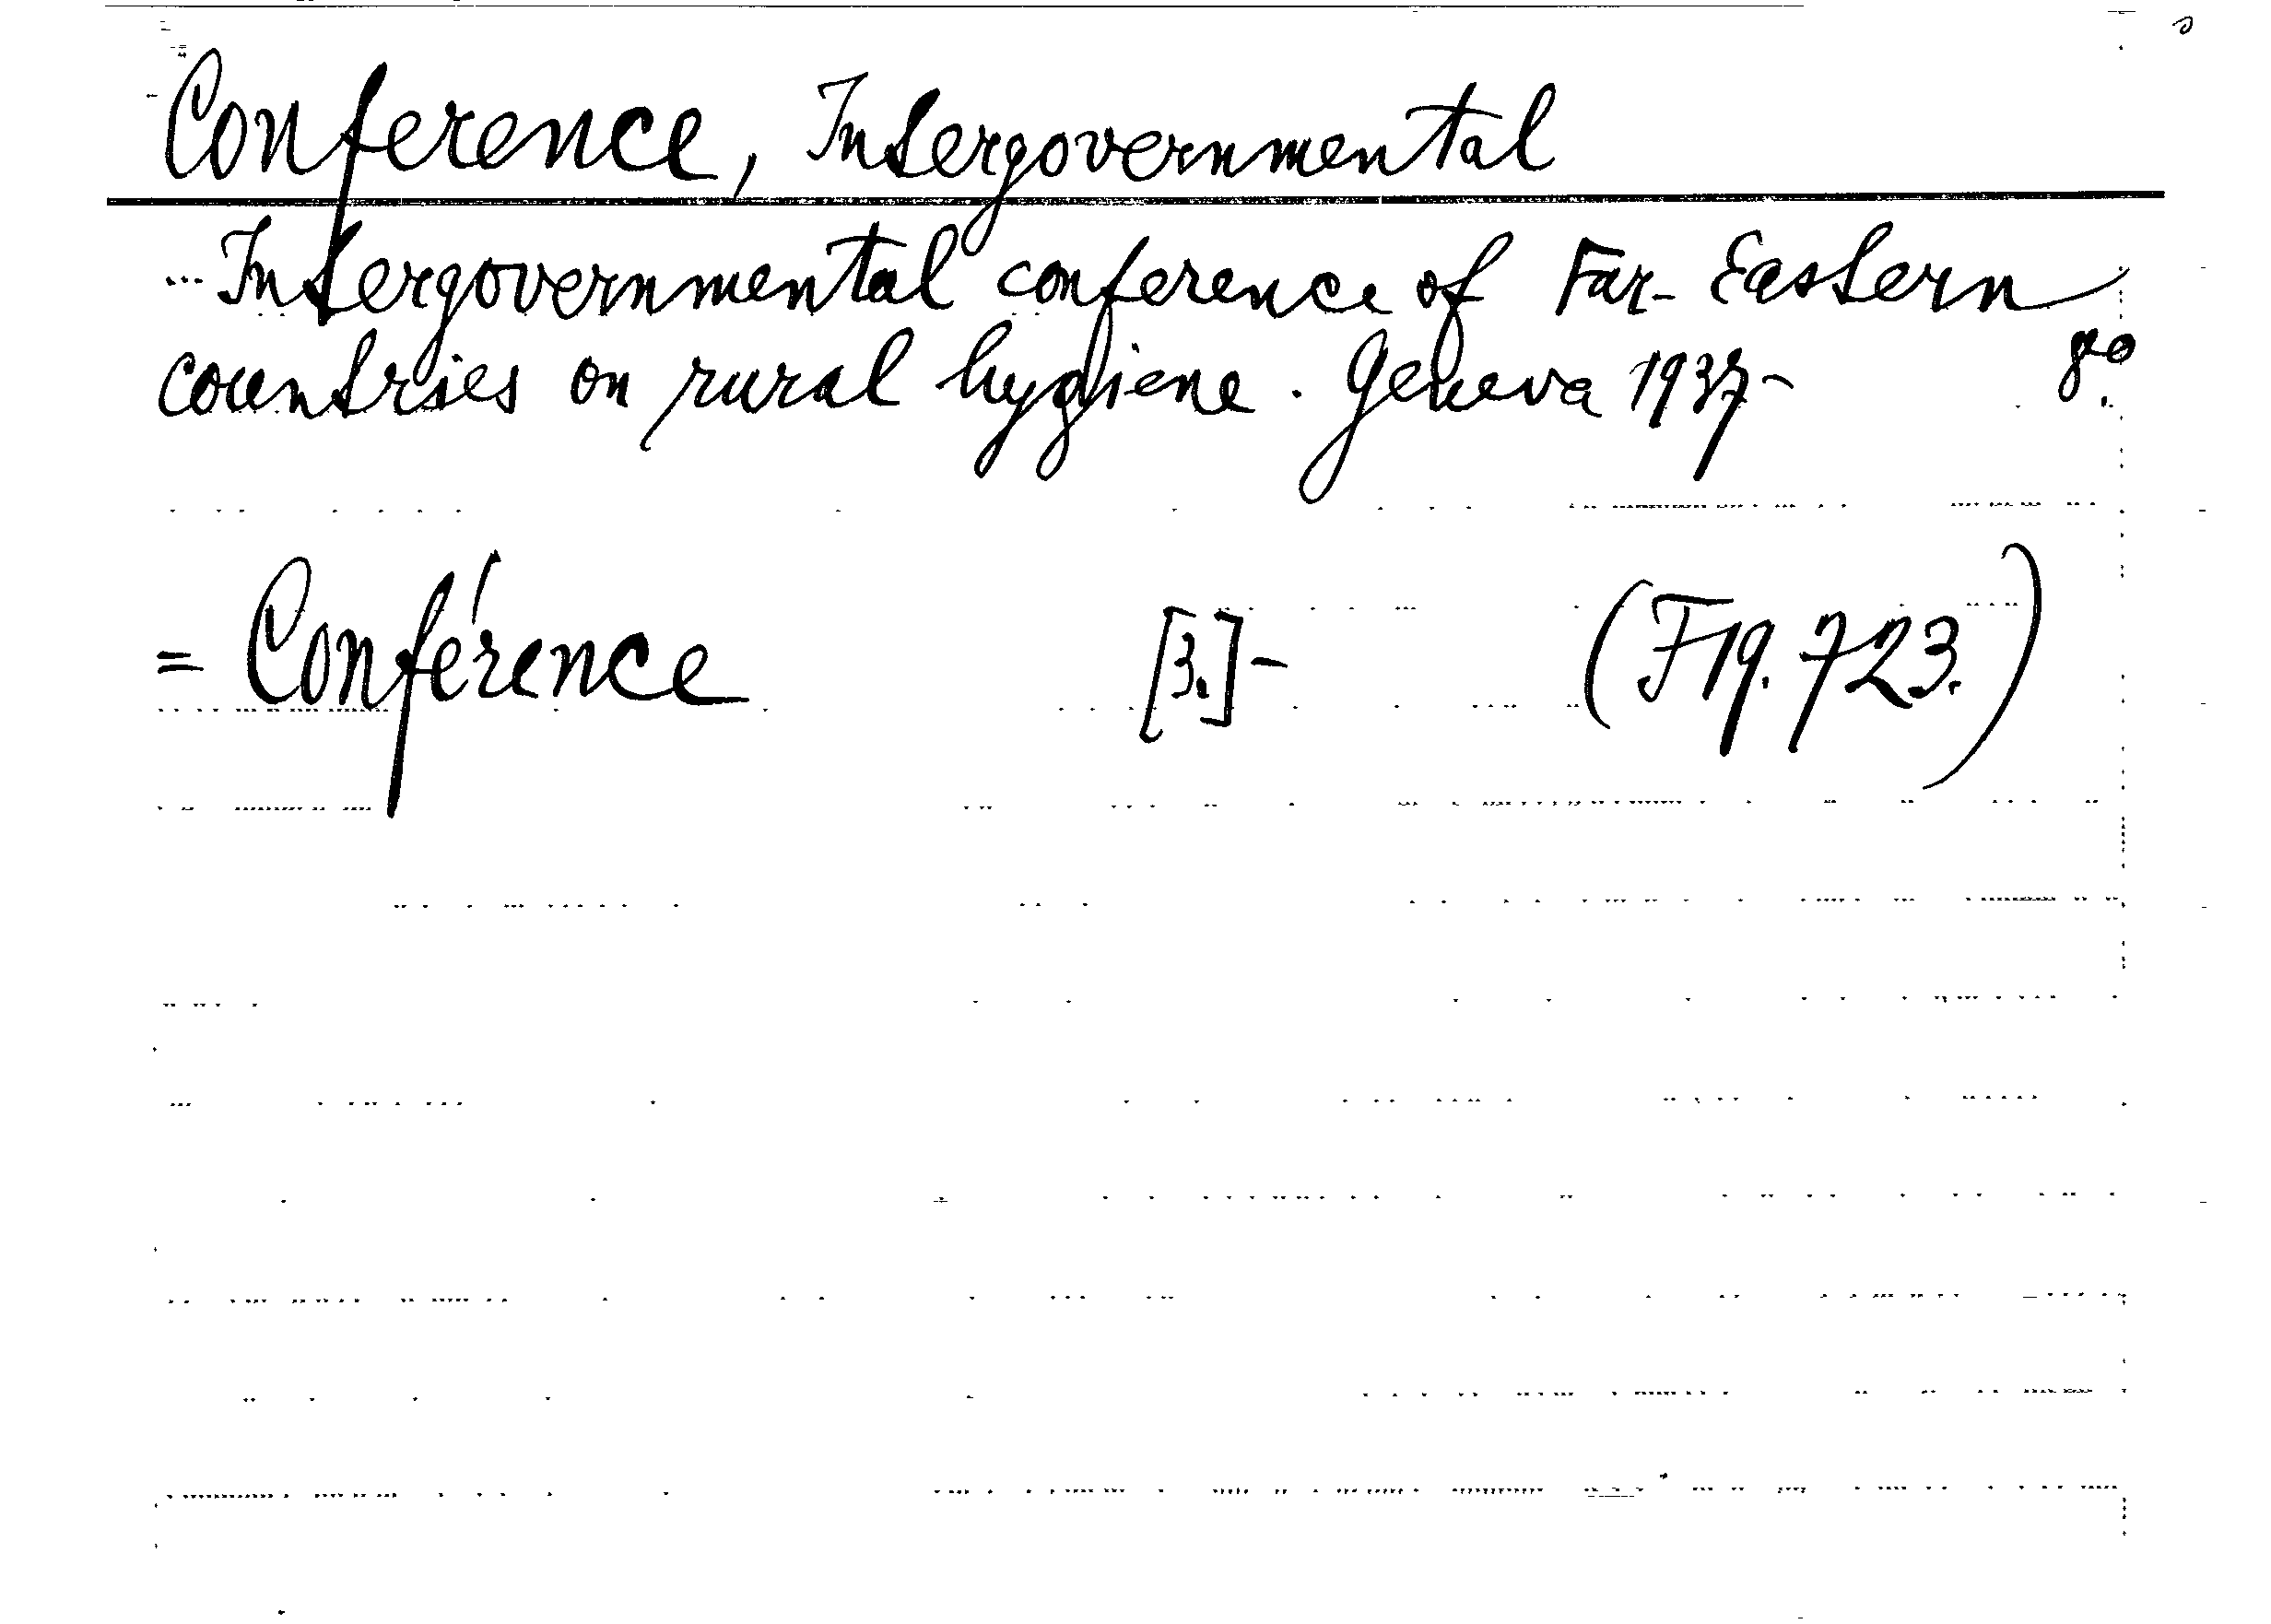 Conference, Intergovernmental
... Intergovernmental conference of Far-Eastern
countries on rural hygiene. Geneva 1937- 8°.
= Conférence [3.]- (F19.723.)